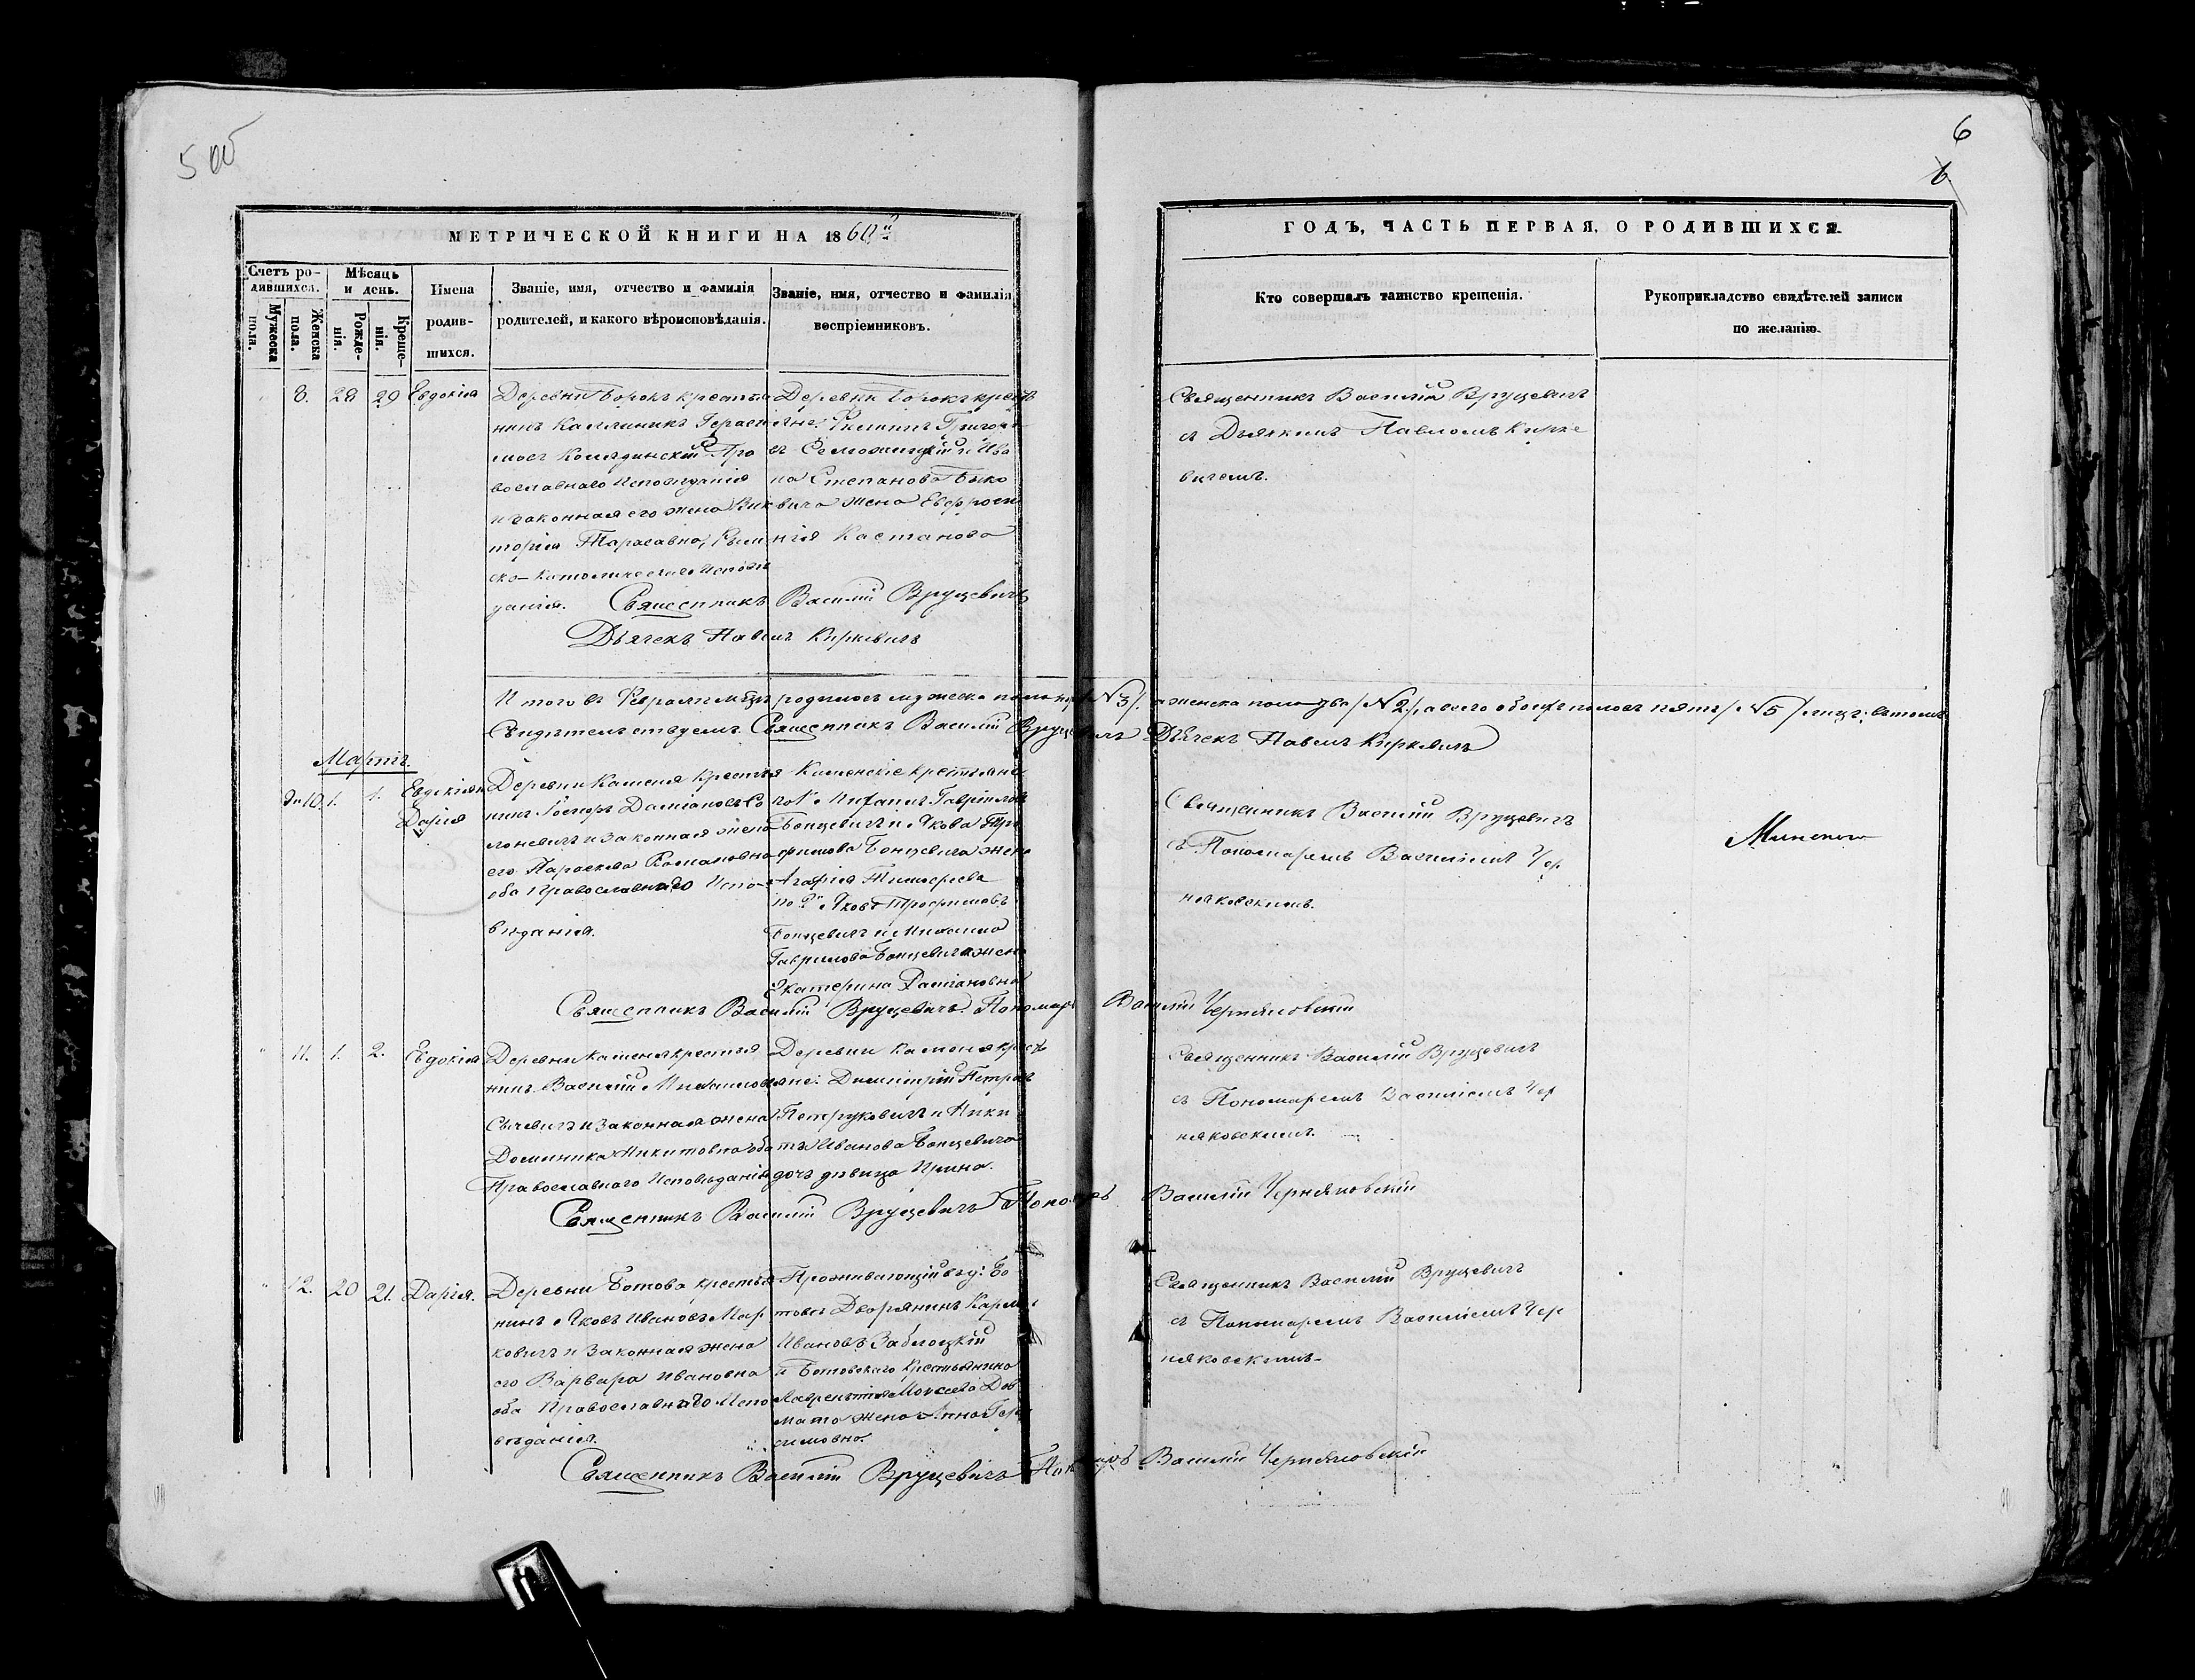 5 об
6
6.
МЕТРИЧЕСКОЙ КНИГИ НА 1860й
ГОДЪ, ЧАСТЬ ПЕРВАЯ, О РОДИВШИХСЯ.
Счетъ ро-
дившихся.
Мужеска
пола.
Женска
пола.
Мѣсяцъ
и день.
Рожде-
нія.
Креше-
нія.
Имена
родив-
шихся.
Званіе, имя, отчество и фамилія
родителей, и какого вѣроисповѣданія.
Званіе, имя, отчество и фамилія
воспріемниковъ.
Кто совершалъ таинство крещенія.
Рукоприкладство свидѣтелей записи
по желанію.
8. 28 29 Евдокія
Деревни Борокъ крестья
нинъ Каллиникъ Герасі
мовъ Пра
вославнаго Исповѣданія
и законная его жена Вик
торія Тарасавна, Рим
ско-Католическаго Исповѣ
данія.
Деревни Борокъ крестья
яне: Филиппъ Григорь
въ и Ива
на Степанова Быко
вича жена Евфроси
нія
Священникъ Василій Вруцевичъ
Дьячекъ Павелъ Киркевичъ
Священникъ Василій Вруцевичъ
съ Дьякомъ Павломъ Кирке
вичемъ.
Итого въ Февралѣ мѣсяцѣ родилось мужеска пола три /№3/. а женска пола два /№2/, а всего обоихъ половъ пять /№5/ лицъ; въ томъ
Свидѣтельствуемъ Священникъ Василій Вруцевичъ Дьячекъ Павелъ Киркевичъ
Мартъ.
9 и 10. 1. 1. Евдокія и
Дарія
Деревни Каменя крестья
нинъ Даміановъ
и законная жена
его Параскева Романовна
оба Православнаго Испо-
вѣданія.
Каменскіе крестьяне
по 1й Михаилъ Гавріиловъ
Бонцевичъ и Якова Тро
фимова Бонцевича жена
Агафія Тимофеева
по 2й Яковъ Трофимовъ
Бонцевичъ и Михаила
Гаврилова Бонцевича жена
Екатерина
Священникъ Василій Вруцевичъ. Пономарь Василій Черняковскій
Священникъ Василій Вруцевичъ
съ Пономаремъ Василіемъ Чер
няковскимъ.
11. 1. 2. Евдокія
Деревни Каменя крестья
нинъ Василій Михаиловъ
Сычевичъ и законная жена
Доминика Никитовна оба
Православнаго Исповѣданія
Деревни Каменя кресть
яне: Димитрій Петровъ
Петруковичъ и Ники
ты Иванова Бонцевича
дочь дѣвица Ирина.
Священникъ Василій Вруцевичъ Пономарь Василій Черняковскій
Священникъ Василій Вруцевичъ
съ Пономаремъ Василіемъ Чер
няковскимъ.
12. 20 21. Дарія.
Деревни Ботова крестья
нинъ Яковъ Ивановъ Мар
ковичъ и законная жена
его Варвара Ивановна
оба Православнаго Испо
вѣданія.
Проживающій въ д: Бо
товѣ Дворянинъ Карлъ
Ивановъ Заблоцкій
и Ботовскаго крестьянина
Лаврентія Моисеева Дов
мата жена Анна Гера
симовна.
Священникъ Василій Вруцевичъ Пономарь Василій Черняковскій
Священникъ Василій Вруцевичъ
съ Пономаремъ Василіемъ Чер
няковскимъ.